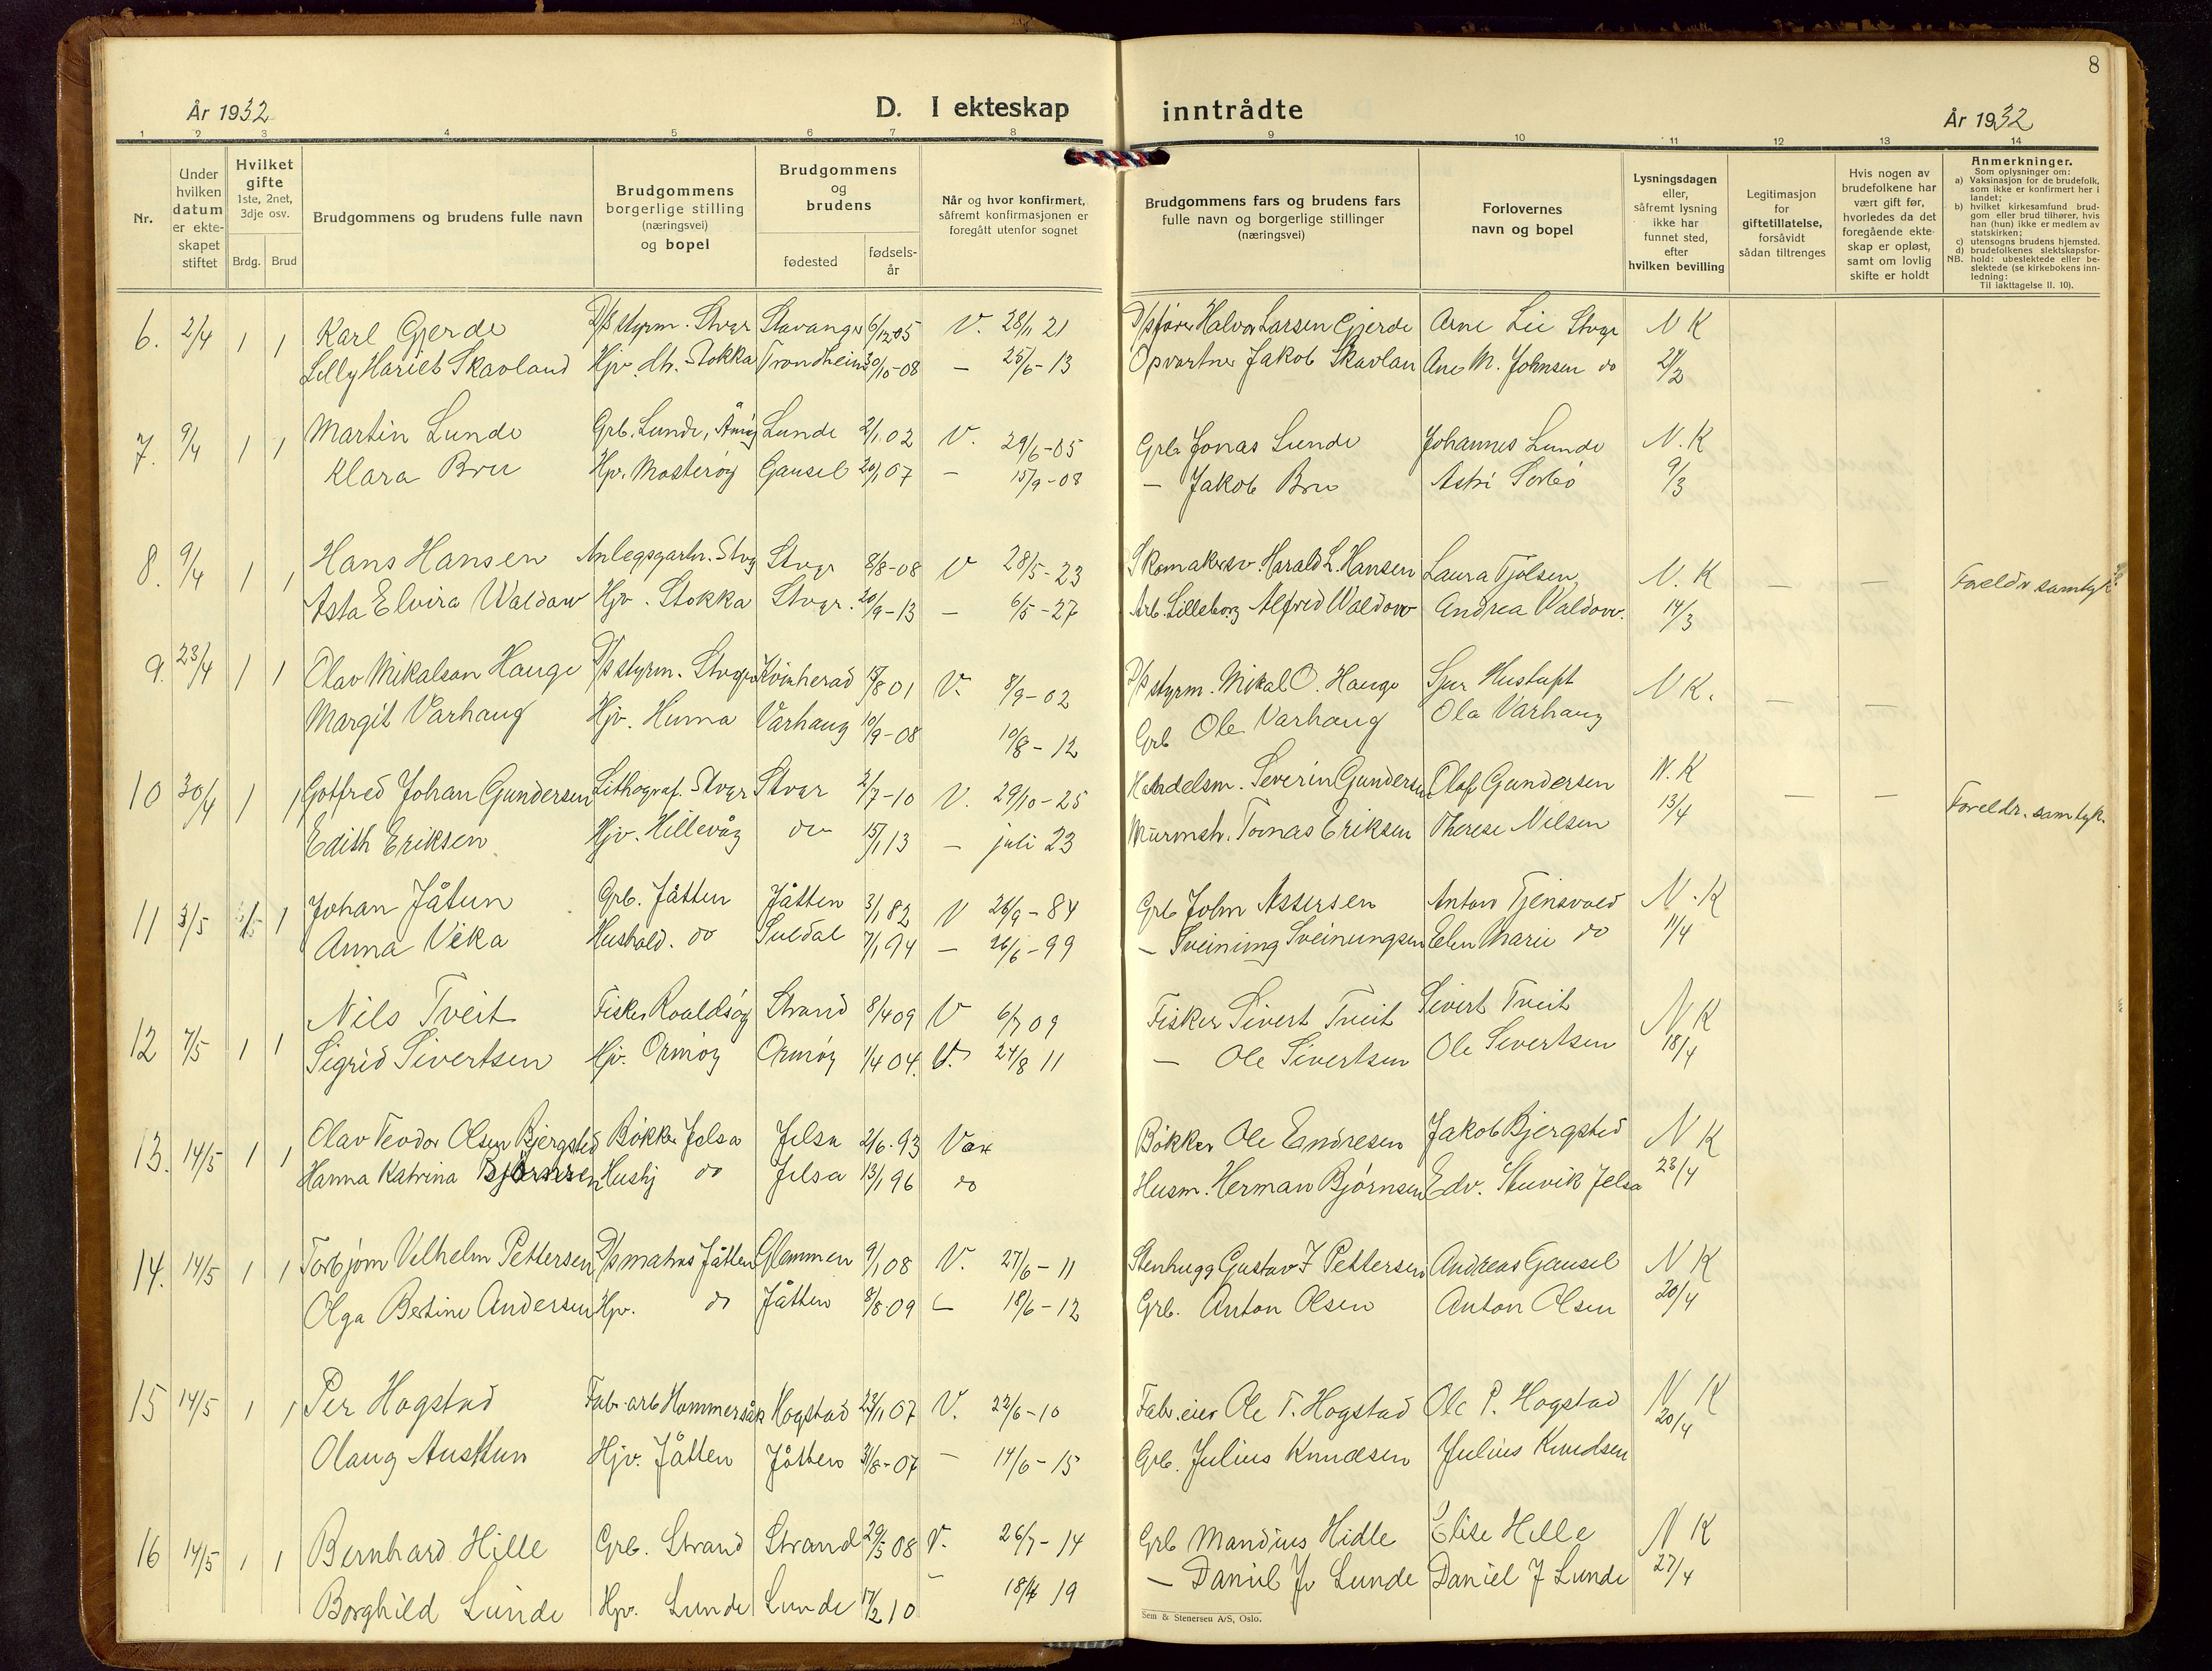 8
År 1932
D. I ekteskap inntrådte
År 1932
1 2 3 4 5 6 7 8 9 10 11 12 13 14
Nr.
Under hvilken datum er ekteskapet stiftet
Hvilket gifte 1ste, 2net, 3dje osv.
Brdg. Brud
Brudgommens og brudens fulle navn
Brudgommens borgerlige stilling (næringsvei) og bopel
Brudgommens og brudens
fødested
fødsels-år
Når og hvor konfirmert, såfremt konfirmasjonen er foregått utenfor sognet
Brudgommens fars og brudens fars fulle navn og borgerlige stillinger (næringsvei)
Forlovernes navn og bopel
Lysningsdagen eller, såfremt lysning ikke har funnet sted, efter hvilken bevilling
Legitimasjon for giftetillatelse, forsåvidt sådan tiltrenges
Hvis nogen av brudefolkene har vært gift før, hvorledes da det foregående ekteskap er opløst, samt om lovlig skifte er holdt
Anmerkninger.
Som oplysninger om:
a) Vaksinasjon for de brudefolk, som ikke er konfirmert her i landet;
b) hvilket kirkesamfund brudgom eller brud tilhører, hvis han (hun) ikke er medlem av statskirken;
c) utensogns brudens hjemsted.
d) brudefolkenes slektskapsforhold: ubeslektede eller beslektede (se kirkebokens innledning:
NB.
Til iakttagelse II. 10).
6. 2/4 1 1 Karl Gjerde D/s styrm. Stvgr Stavanger 6/12 05 V. 28/11 21 D/s fører Halvor Larsen Gjerde Arne Lie Stvgr N K
Lilly Hariet Skavland Hjv. dh. Stokka Trondheim 30/10-08 - 25/6-13 Opvartner Jakob Skavlan Ane M. Johnsen do 21/2
7. 9/4 1 1 Martin Lunde Grb. Lunde, Åmøy Lunde 2/1 02 V. 29/6-05 Grb Jonas Lunde Johannes Lunde N. K
Klara Bru Hjv. Mosterøy Gausel 20/1 07 - 15/9-08 - Jakob Bru Astri Sørbö 9/3
8. 9/4 1 1 Hans Hansen Anlegsgartn. Stvg Stvgr 8/8-08 V 28/5-23 Skomakersv. Harald L. Hansen Laura Tjölsen, N. K - - Foreldr. samtyk
Asta Elvira Waldow Hjv. Stokka Stvgr. 20/9-13 - 6/5-27 Arb. Lilleborg Alfred Waldow Andrea Waldow. 14/3
9. 23/4 1 1 Olav Mikalson Hauge D/s styrm. Stvgr Kvinherad 17/8 01 V. 8/9-02 D/s styrm. Mikal O. Hauge Sjur Hustuft N K. - -
Margit Varhaug Hjv. Hunna Varhaug 10/9-08 10/8-12 Grb Ole Varhaug Ola Varhaug
10 30/4 1 1 Gotfred Johan Gundersen Lithograf. Stvgr Stvgr 2/7-10 V. 29/10-25 Handelsm. Severin Gundersen Olaf Gundersen N. K - - Foreldr. samtyk.
Edith Eriksen Hjv. Hillevåg do 15/1 13 - juli 23 Murmstr. Tomas Eriksen Therese Nilsen 13/4
11 3/5 1 1 Johan Jåtun Grb. Jåtten Jåtten 3/1 82 V 26/9-84 Grb John Assersen Anton Tjensvold N. K
Anna Vika Hushold. do Suldal 7/1 94 - 26/6-99 - Sveinung Sveinungsen Elen Marie do 11/4
12 7/5 1 1 Nils Tveit Fisker Roaldsøy Strand 8/4 09 V 6/7 09 Fisker Sivert Tveit Sivert Tveit N K
Sigrid Sivertsen Hjv. Ormøy Ormøy 1/4 04. V. 24/8 11 - Ole Sivertsen Ole Sivertsen 18/4
13. 14/5 1 1 Olav Teodor Olsen Bjergsted Bökker Jelsa Jelsa 2/6. 93 Vax Bökker Ole Endresen Jakob Bjergsted N K
Hanna Katrina Bjørnsen Hushj do Jelsa 13/1 96 do Husm. Herman Bjørnsen Edv. Stuvik Jelsa 23/4
14. 14/5 1 1 Torbjørn Vilhelm Pettersen D/s matros Jåtten Glemmen 9/1 08 V. 27/6-11 Stenhugg Gustav F Pettersen Andreas Gausel N K
Olga Bertine Andersen Hjv. do Jåtten 8/8 09 - 18/6-12 Grb. Anton Olsen Anton Olsen 20/4
15 14/5 1 1 Per Hogstad Fab. arb Hommersåk Hogstad 22/1 07 V. 22/6-10 Fabr. eier Ole T. Hogstad Ole P. Hogstad N K
Olaug Austtun Hjv. Jåtten Jåtten 31/8-07 - 14/6-15 Grb. Julius Knudsen Julius Knudsen 20/4
16 14/5 1 1 Bernhard Hille Grb. Strand Strand 29/5 08 V. 26/7-14 Grb Mandius Hidle Elise Hille N K
Borghild Lunde Hjv. Lunde Lunde 17/2 10 - 18/4 19 - Daniel J. Lunde Daniel J Lunde 27/4
Sem & Stenersen A/S, Oslo.